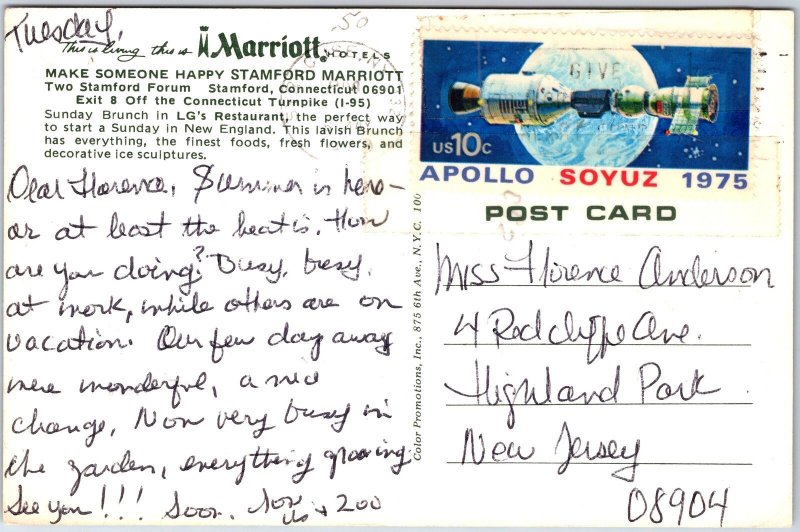 Tuesday,
.50
This is living this is Marriott HOTELS
MAKE SOMEONE HAPPY STAMFORD MARRIOTT
Two Stamford Forum Stamford, Connecticut 06901
Exit 8 Off the Connecticut Turnpike (I-95)
Sunday Brunch in LG's Restaurant, the perfect way
to start a Sunday in New England. This lavish Brunch
has everything, the finest foods, fresh flowers, and
decorative ice sculptures.
Dear Florence, Summer is here –
or at least the heat is. How
are you doing? Busy, busy.
at work, while others are on
vacation. Our few day away
were wonderful, a nice
change, Now very busy in
the garden, everything growing
See you!!! Soon.
Color Promotions, Inc., 875 6th Ave., N.Y.C. 100
GIVE
US10c
APOLLO SOYUZ 1975
POST CARD
Miss Florence Anderson
4 Redcliffe Ave.
Highland Park
New Jersey
08904